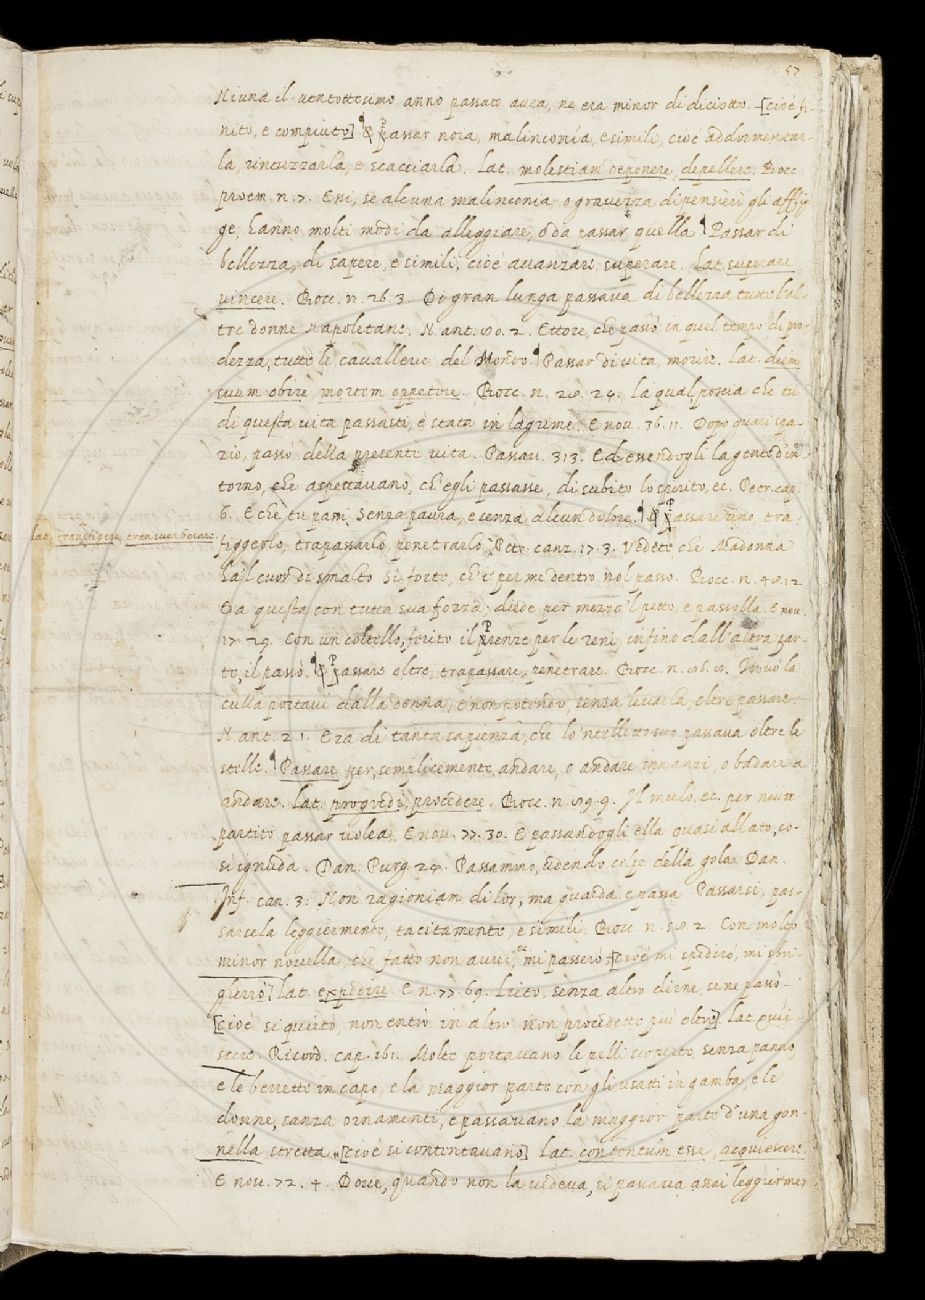 57
Niuna il uentottesimo anno passato auea, ne era minor di diciotto. [cioè fi-
nito, e compiuto] ¶ Passar noia, malinconia, e simili, cioè addormentar-
la, rintuzzarla, e scacciarla. Lat. molestiam deponere, depellere. Bocc.
proem. n. 7. Essi, se alcuna malinconia, o grauezza di pensieri gli afflig-
ge, hanno molti modi da alleggiare, o da passar quella ¶ Passar di
bellezza, di sapere, e simili, cioè auanzare, superare. Lat. superare
vincere. Bocc. n. 26. 3. Di gran lunga passaua di bellezza tutte l'al-
tre donne napoletane. N. ant. 2. Ettore, che passò in quel tempo di pro-
dezza, tutte le caualleue del Mondo. ¶ Passar di vita, morire. Lat. diem
suum obire, mortem oppetere. Bocc. n. 24. La qual, poscia che tu
di questa vita passasti, è stata in lagrime. E nou. 36. 11. Dopo quasi spa-
zio, passò della presente vita. Passau. 313. Ed essendogli la gente d'in-
torno, che aspettauano, ch'egli passasse, di subito lo spirito, ec. Petr. cap.
6. E che tu passi senza paura, e senza alcun dolore. ¶ Passare uno, tra-
lat. transfigere, transuerberare.
figgerlo, trapassarlo, penetrarlo, Petr. canz. 17. 3. Vedete che Madonna
ha 'l cuor di smalto sì forte, ch'i' per me dentro nol passo. Bocc. n. 12
Ed a questa con tutta sua forza, diede per mezzo 'l petto, e passolla. E nou.
17. 29. Con un coltello, ferito il Prenze per le reni, infino dall'altra par-
te, il passò. ¶ Passare oltre, trapassare, penetrare. Bocc. n. Trouò la
culla postaui dalla donna, e non potendo, senza leuarla, oltre passare.
N. ant. 21. Era di tanta sapienzia, che lo 'ntelletto suo passaua oltre le
stelle. ¶ Passare per, semplicemente, andare, o andare innanzi, o badare a
andare. Lat. progredi, procedere. Bocc. n. 9. Il mulo, ec. per niun
partito passar uolea. E nou. 77. 30. E passandogli ella quasi allato, co-
sì ignuda. Dan. Purg. 24. Passammo, udendo colpe della gola. Dan.
Inf. can. 3. Non ragioniam di lor, ma guarda e passa. Passarsi, pas-
sarsela leggiermente, tacitamente, e simili. Bocc. n. 2. Con molto
minor nouella, che fatto non aurei, mi passerò [cioè mi spedirò, mi sbri-
gherrò] lat. expedire. E n. 77. 69. Lieto, senza altro dirne, se ne passò.
[cioè si quietò, non entrò in altro, non procedette più oltre]. lat. qui-
scere. Ricord. cap. 161. Molte portauano le pelli scoperte, senza panno,
e le berrette in capo, e la maggior parte con gli usatti in gamba, e le
donne, sanza ornamenti, e passauano la maggior parte d'una gon-
nella stretta [cioè si contentauano] Lat. contentum esse, acquiescere.
E nou. 72. 4. Doue, quando non la uedeua, si passaua assai leggiermen-